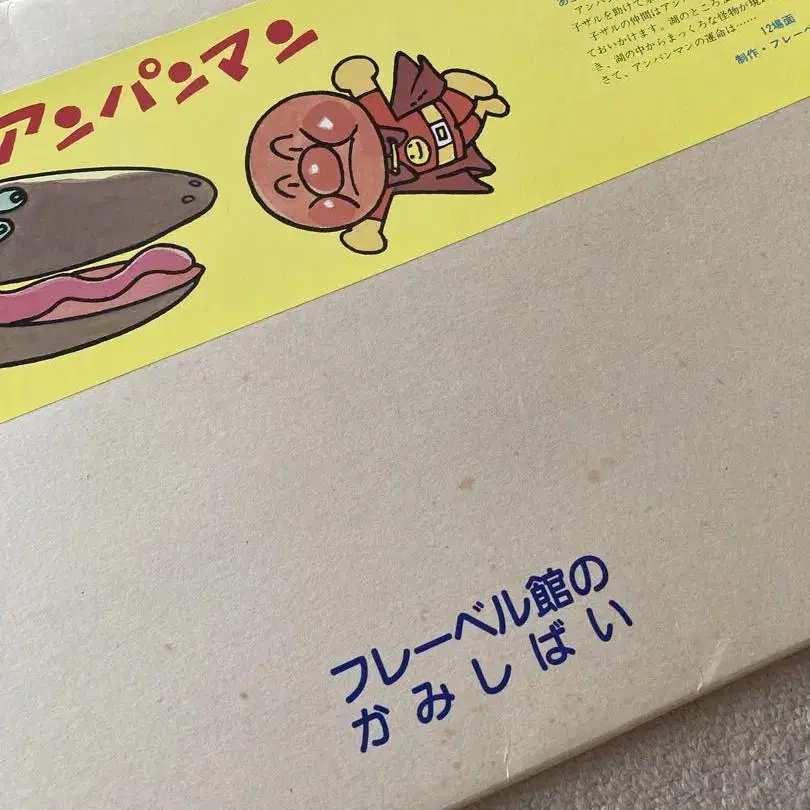 アンパンマン
子ザルを助けて
子ザルの仲間はアン
ておいかけます。湖のところ
き、湖の中からまっくろな怪物が現
さて、アンパンマンの運命は……
12場面
制作・フレーベ
フレーベル館の
かみしばい